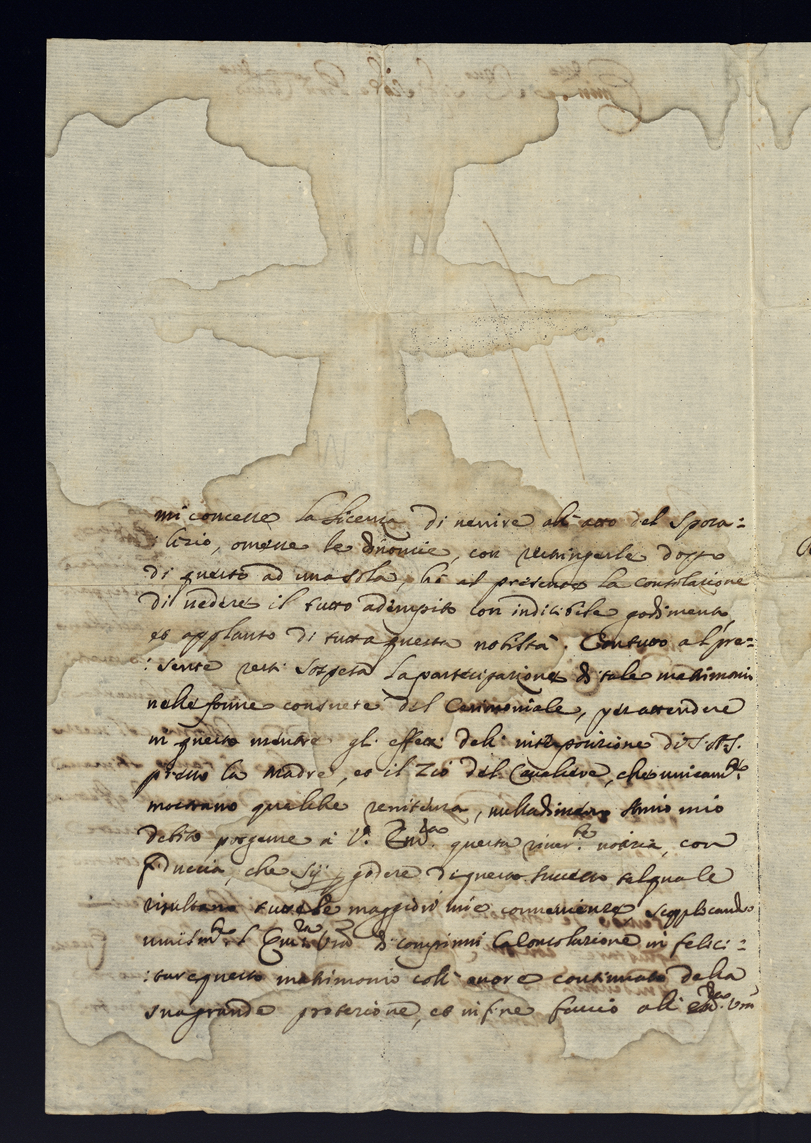 mi concesse la licenza di venire all'atto del Sposa=
:lizio, omesse le dinoncie, con restringerle doppo
di questo ad una sola, hò al presente la consolazione
di vedere il tutto adempito con indicibile godimento,
et applauso di tutta questa nobiltà. Contutto al pre=
:sente resti sospesa la partecipazione di tale matrimonio
nelle forme consuete del Cerimoniale, per attendere
in questo mentre gli effetti dell' interposizione di S.A.S.
presso la Madre, et il Zio del Cavaliere, che unicam.te
mostrano qualche renitenza, nulladimeno stimo mio
debito porgerne à V.ra Em.za questa river.te notizia, con
fiducia, che sij p godere di questo successo tal quale
risultano tutte le maggiori mie convenienze supplicando
umilm.te l'Em.za V.ra di compirmi la consolazione in felici=
:tare questo matrimonio coll' onore continuato della
sua grande protezione, et in fine faccio all' Em.za V.ra